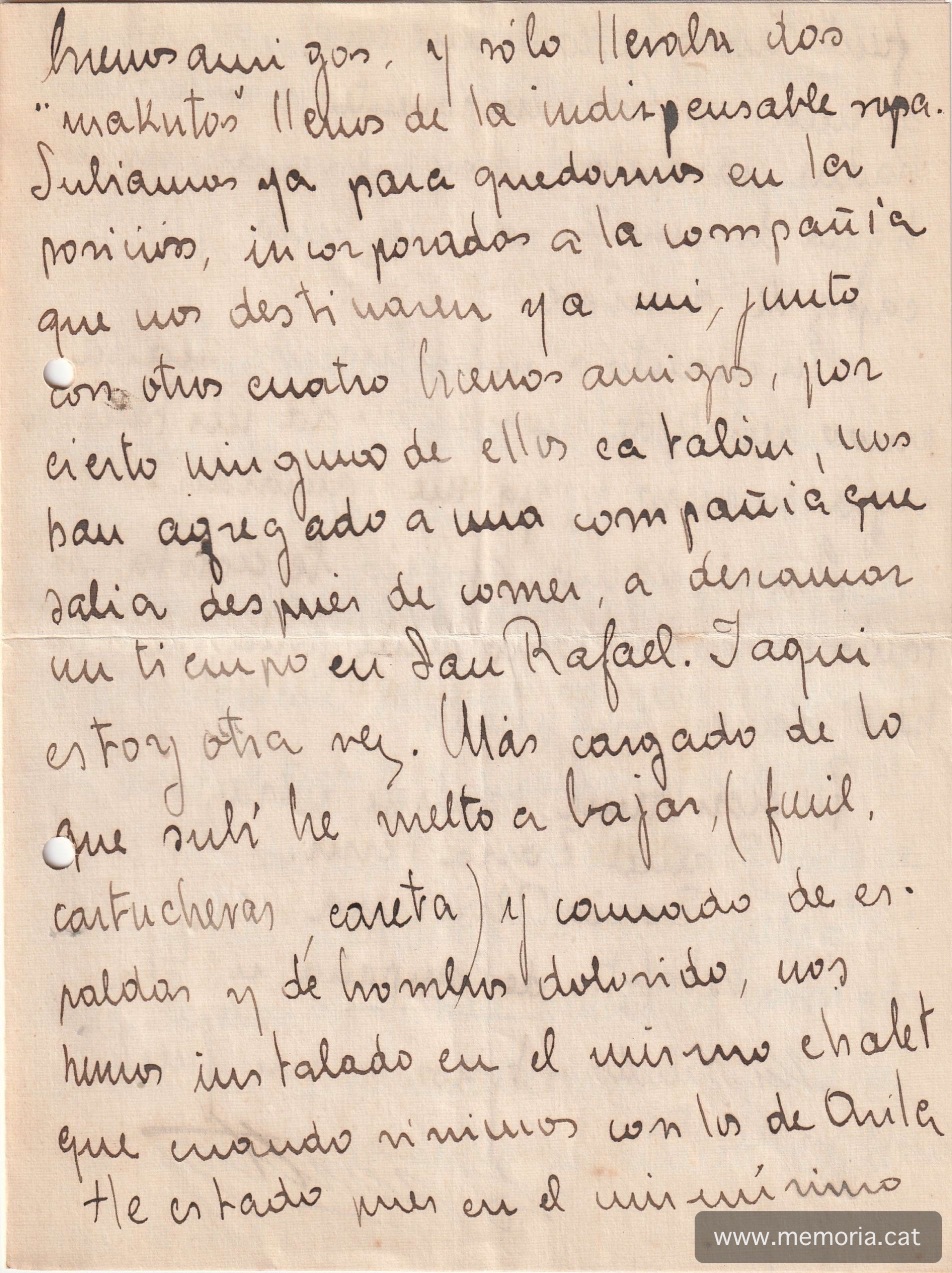 buenos amigos, y sólo llevaba dos
"makutos" llenos de la indispensable ropa.
Subiamos ya para quedarnos en la
posición, incorporados a la compañia
que nos destinaren y a mi, junto
con otros cuatro buenos amigos, por
cierto ninguno de ellos catalán, nos
han agregado a una compañia que
salia después de comer, a descansar
un tiempo en San Rafael. I aqui
estoy otra vez. Más cargado de lo
que subí he vuelto a bajar, (fusil,
cartucheras, careta) y cansado de es-
paldas y de hombros dolorido, nos
hemos instalado en el mismo chalet
que cuando vinimos con los de Avila
He estado pues en el mismísimo
www.memoria.cat